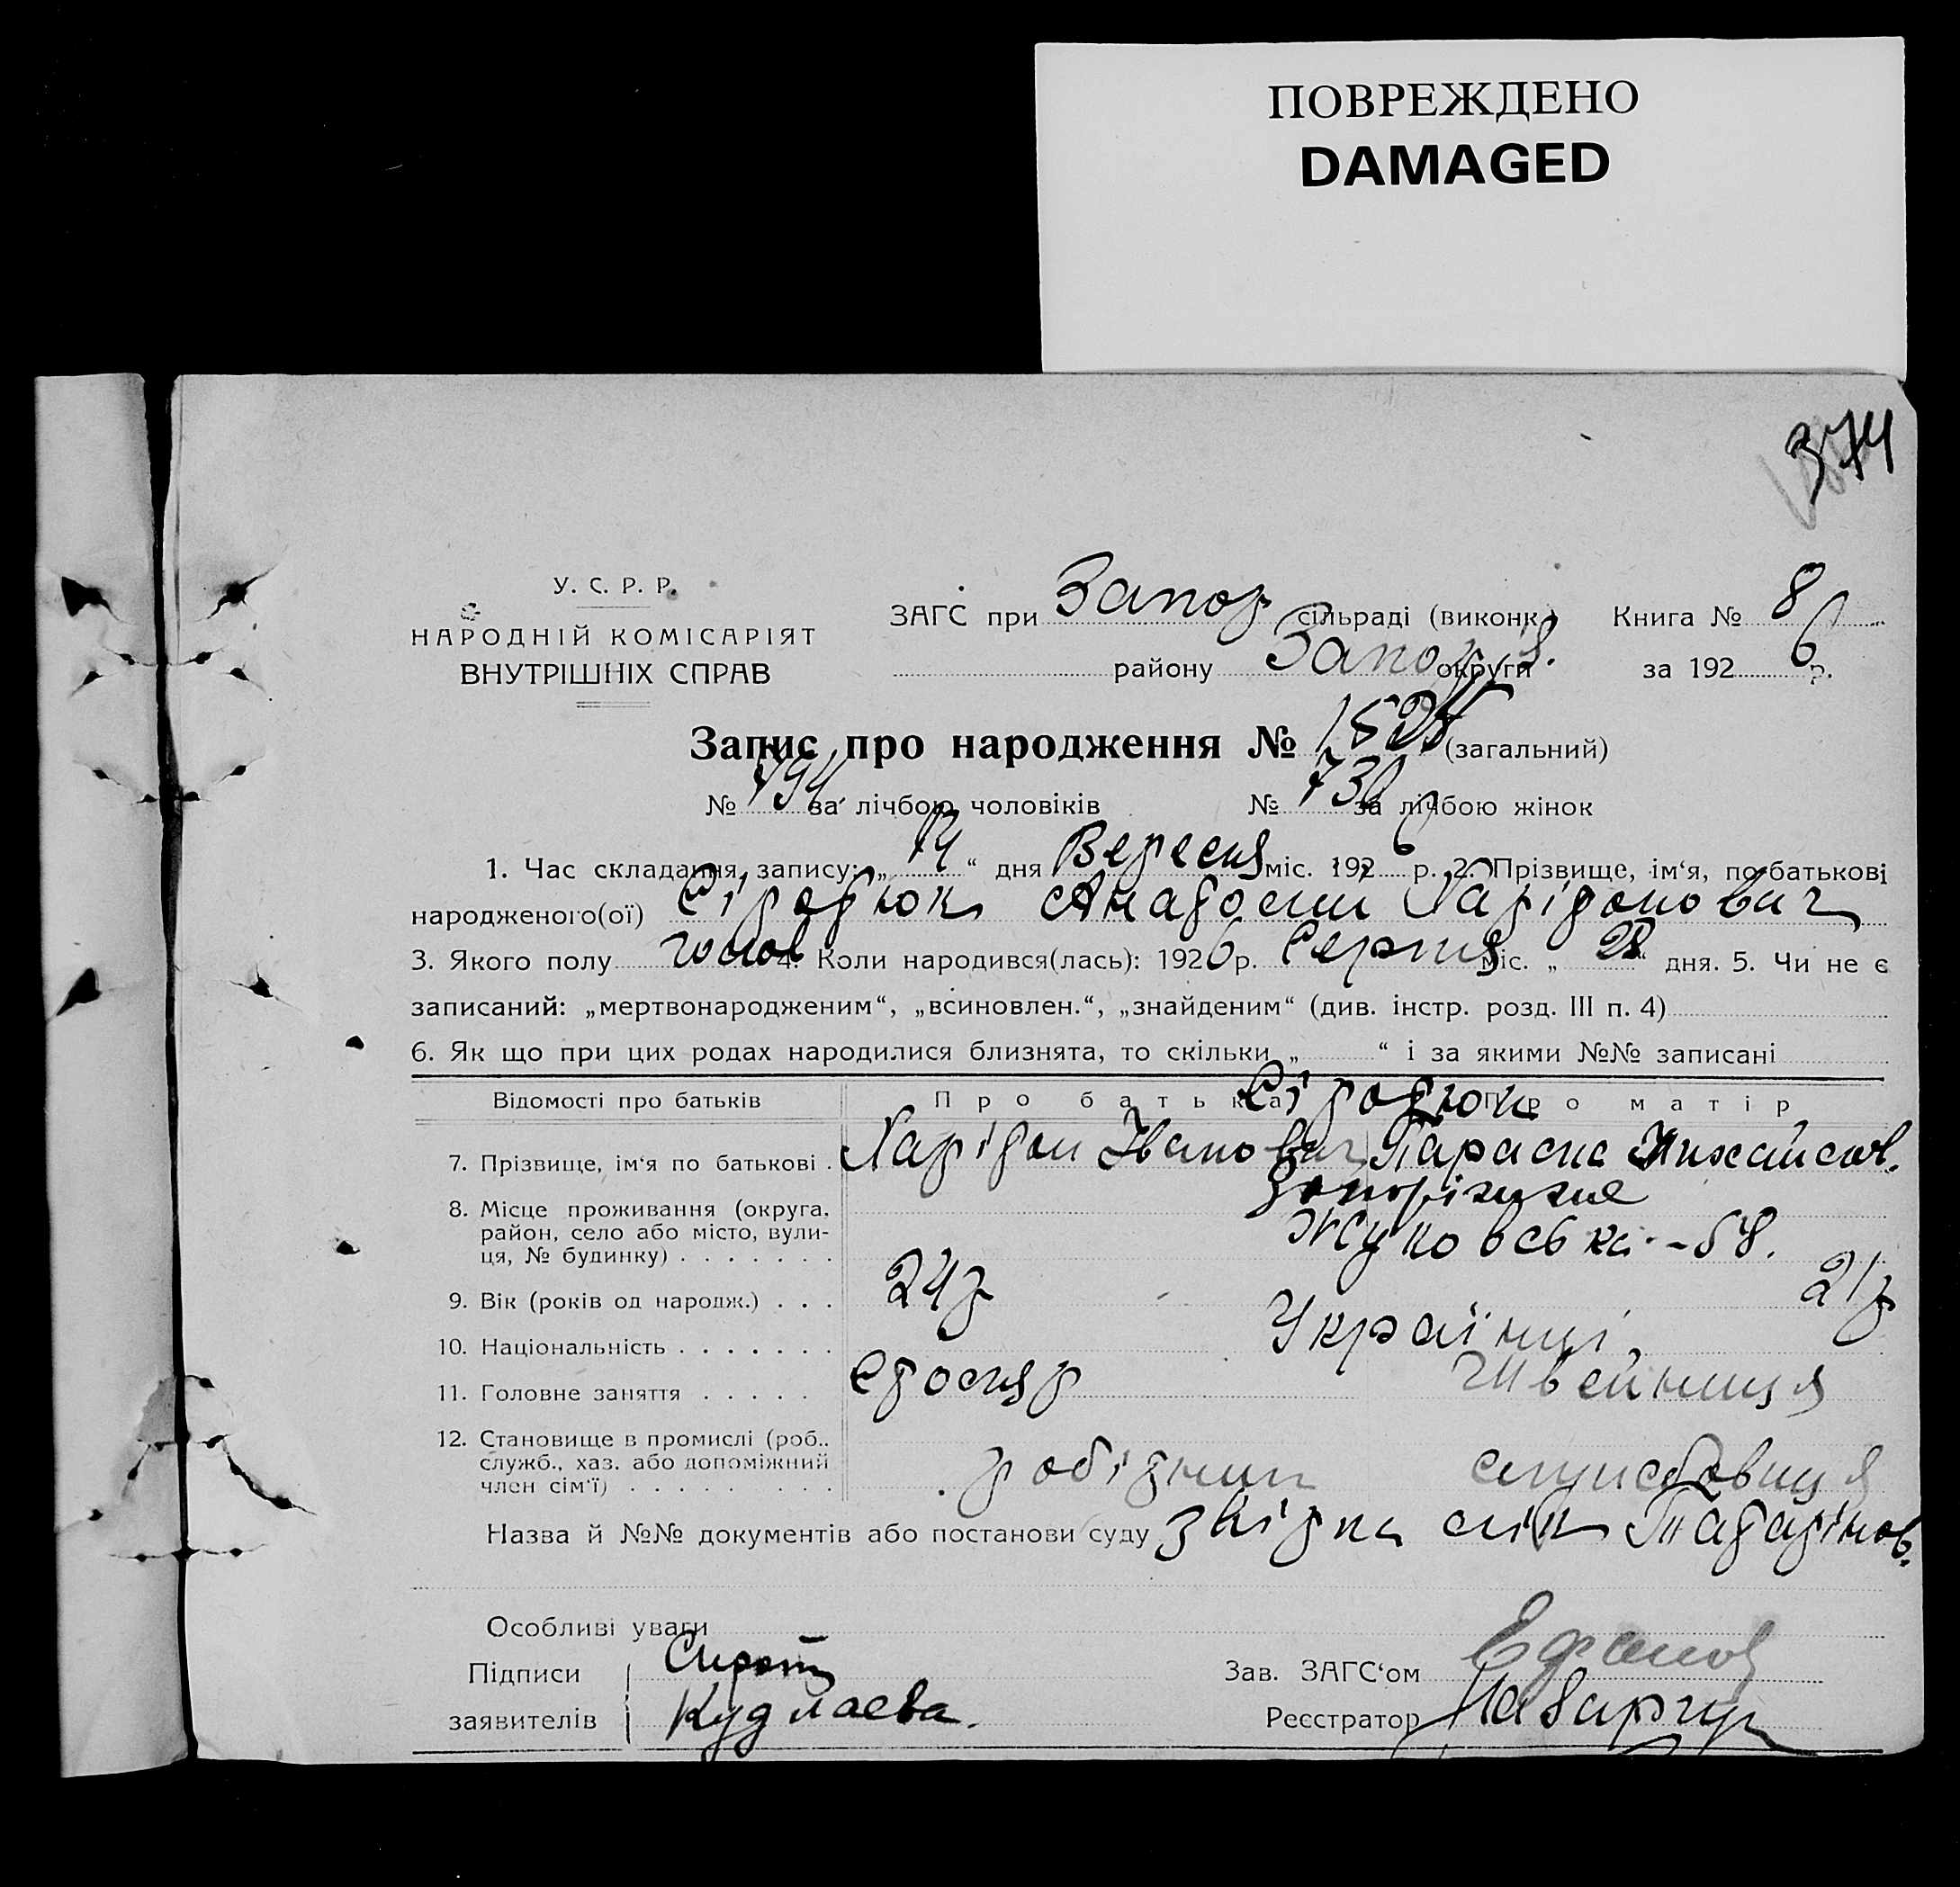 ПОВРЕЖДЕНО
DAMAGED
374
У. С. Р. Р.
НАРОДНІЙ КОМІСАРІЯТ
ВНУТРІШНІХ СПРАВ
ЗАГС при Запор сільраді (виконк.) Книга № 8
району Запоріз. округи за 1926 р.
Запис про народження № 1524 (загальний)
№ 794 за лічбою чоловіків № 730 за лічбою жінок
1. Час складання запису: „14“ дня Вересня міс. 1926 р. 2. Прізвище, ім‘я, по батькові
народженого(ої) Сіродюк Анатолий Харідонович
3. Якого полу чолов 4. Коли народився(лась): 1926 р. Серпня міс. „28“ дня. 5. Чи не є
записаний: „мертвонародженим“, „всиновлен.“, „знайденим“ (див. інстр. розд. III п. 4)
6. Як що при цих родах народилися близнята, то скільки „ “ і за якими №№ записані
Відомості про батьків Про батька Про матір
Сіродюк
7. Прізвище, ім‘я по батькові . Харідон Іванович Параска Михайлов.
8. Місце проживання (округа, район, село або місто, вулиця, № будинку) Запоріжжє
Жуковська - 58.
9. Вік (років од народж.) . . . 24 р 21 р
10. Національність . . . . . . . Українці
11. Головне заняття . . . . . слюсар Швейниця
12. Становище в промислі (роб., служб., хаз. або допоміжний член сім‘ї) робідник службовиця
Назва й №№ документів або постанови суду звідка лік
Особливі уваги
Підписи
заявителів Кудлаева.
Зав. ЗАГС‘ом
Реєстратор